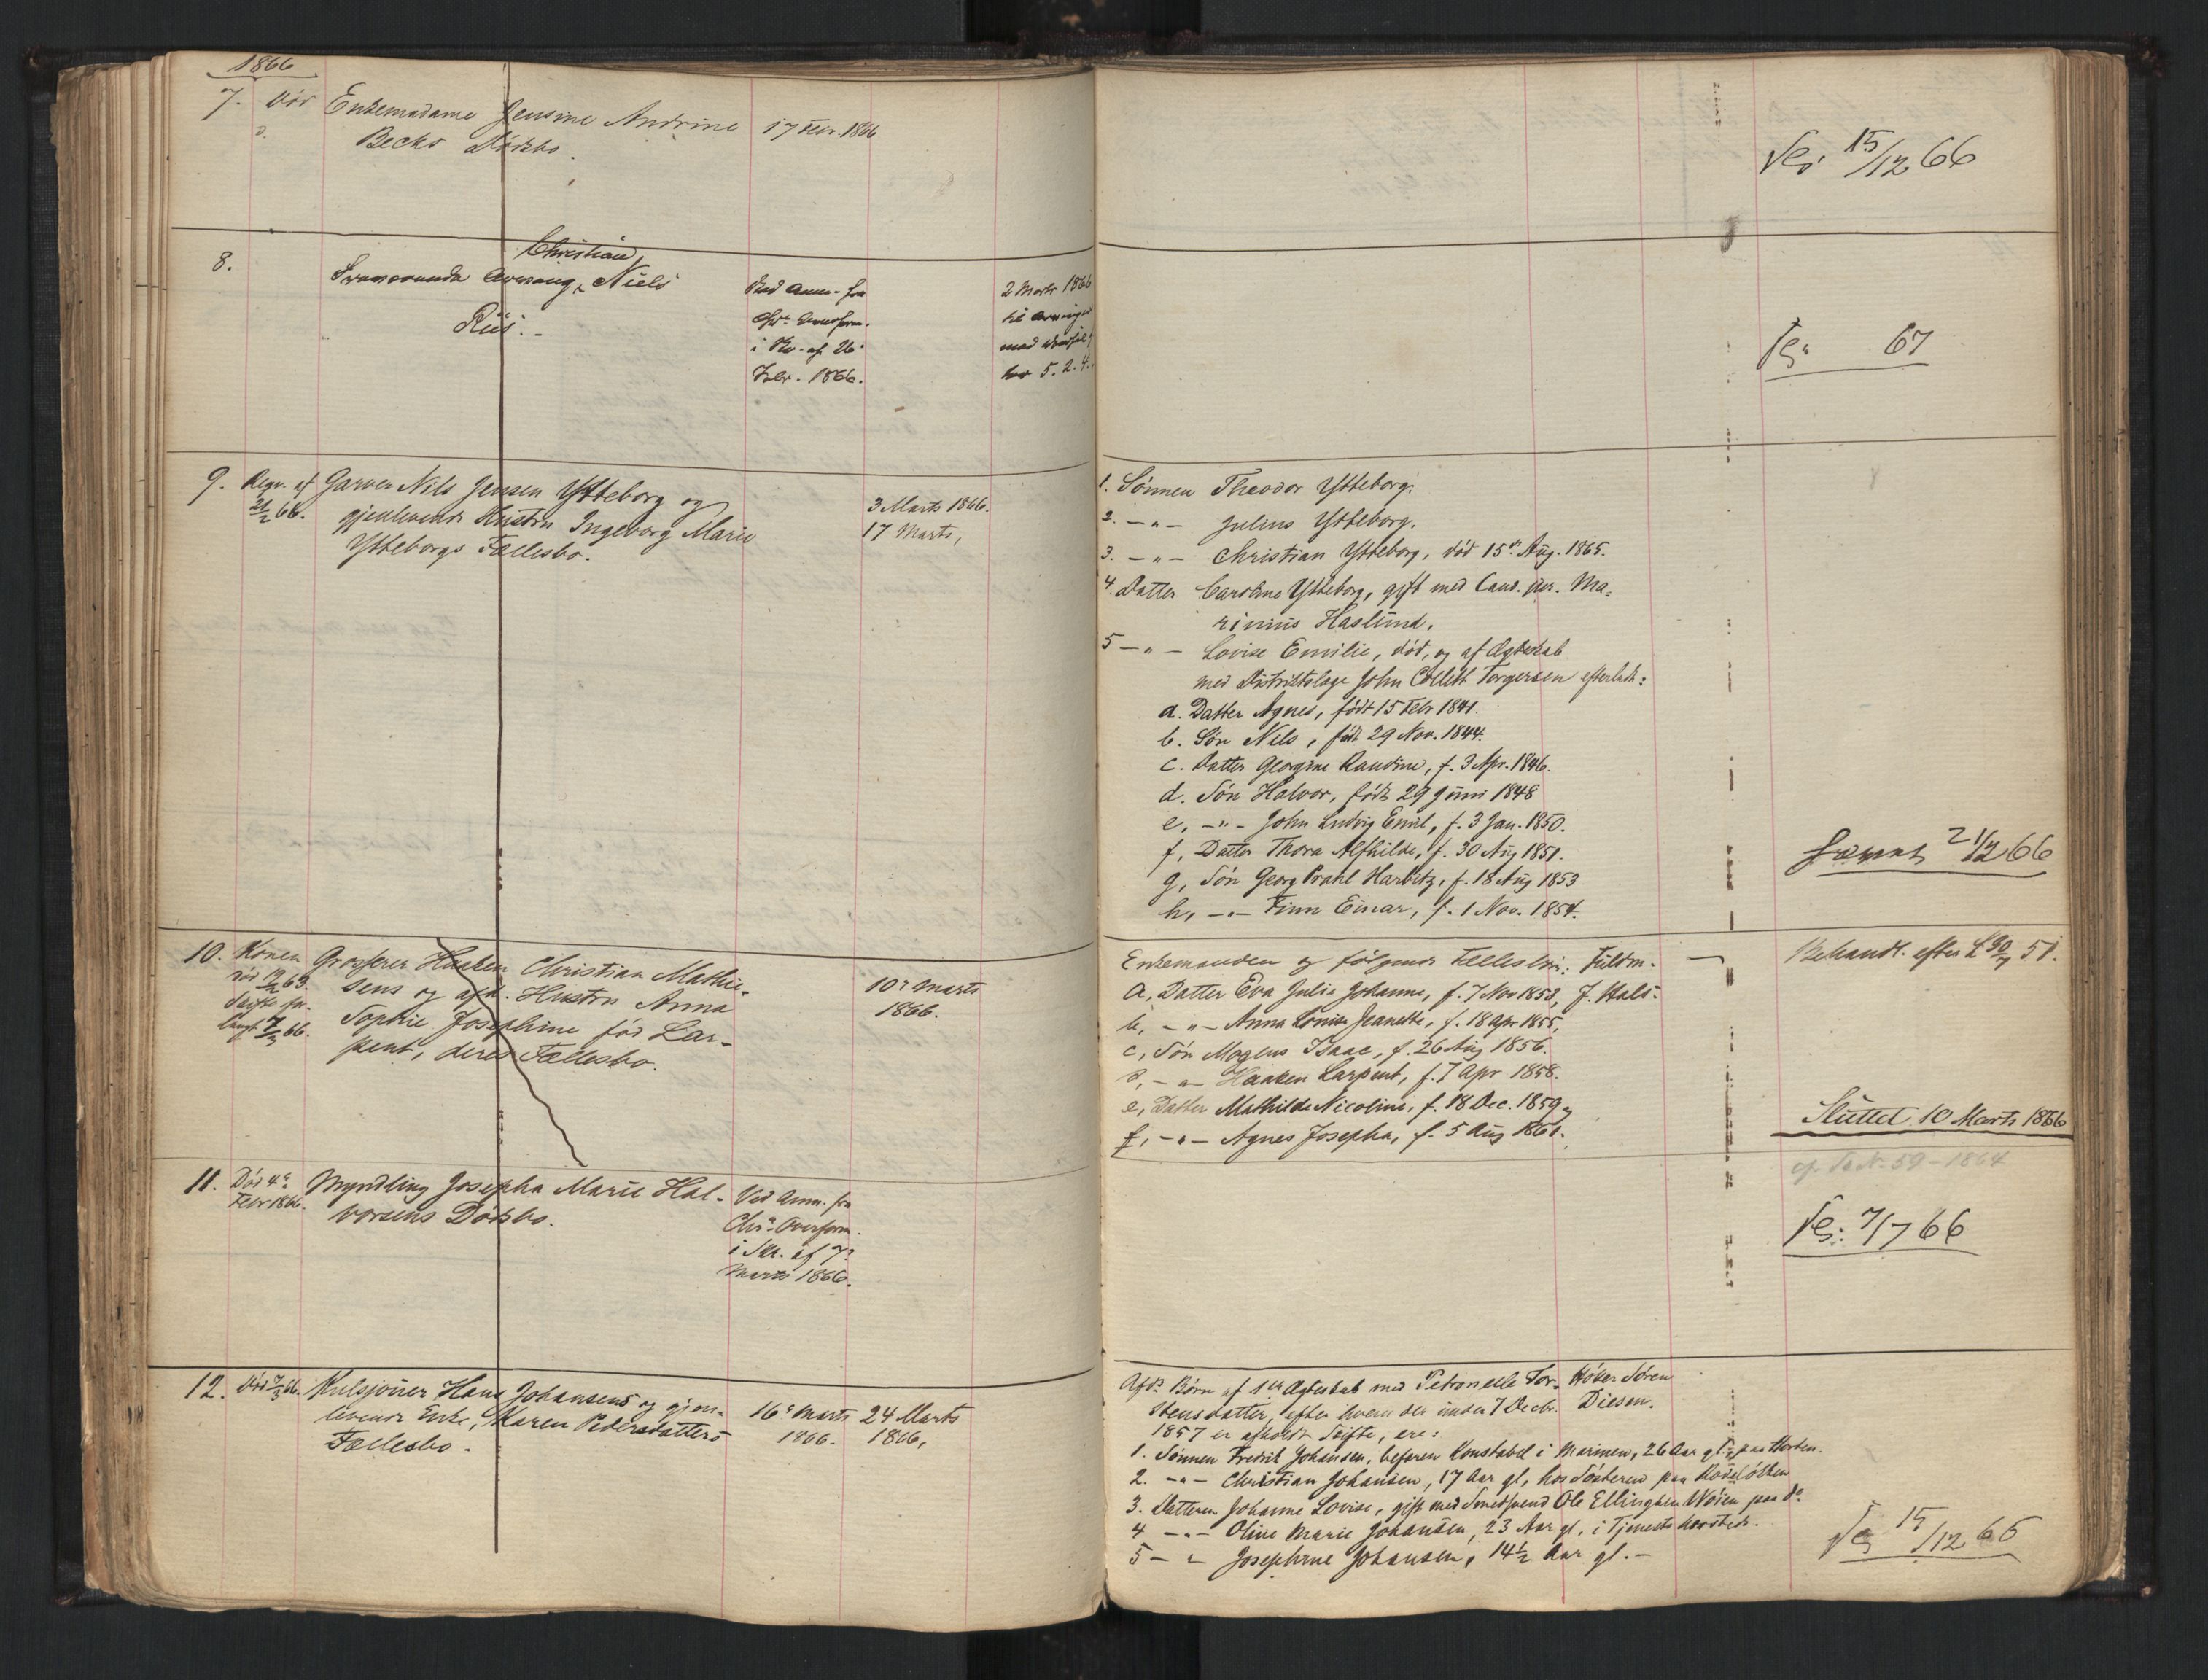 1866
7. Død Enkemadame Jensine Andrine 17 Febr. 1866
Becks Dødsbo.
15/12 66
8. Christian
Fraværende Arving, Niels
Riis.
Ved Anm. fra
Chr. Overform.
i Skr. af 26
Febr. 1866.
2 Marts 1866
67
9. Begr. af Garver Nils Jensen Ytteborg og
21/2 66. gjenlevende Hustru Ingeborg Marie
Ytteborgs Fællesbo.
3 Marts 1866.
17 Marts,
1. Sønnen Theodor Ytteborg.
2. -"- Julius Ytteborg.
3. -"- Christian Ytteborg, død 15de Aug. 1865.
4. Datter Caroline Ytteborg, gift med Cand. jur. Ma-
rinius Haslund.
5 -"- Lovise Emilie, død, og af Ægteskab
med Distriktslæge John Collett Torgersen efterladt:
a. Datter Agnes, født 15 Febr 1841.
b. Søn Nils, født 29 Nov. 1844.
c. Datter Georgine Randine, f. 3 Apr. 1846.
d. Søn Halvor, født 29 Juni 1848
e, -"- John Ludvig Emil, f. 3 Jan. 1850.
f, Datter Thora Alfhilde, f. 30 Aug 1851.
g, Søn Georg Prahl Harbitz, f. 18 Aug 1853
h, -"- Finn Einar, f. 1 Nov. 1854.
21/12 66
10. Konen Grosserer Haaken Christian Mathie-
død 19/12 63. sens og afd. Hustru Anna
Skifte for- Sophie Josephine fød Lar-
langt 7/3 66. pent, deres Fællesbo.
10de Marts
1866.
Enkemanden og følgende Fællesbørn: Fuldm.
a, Datter Eva Julie Johanne, f. 7 Nov 1853, J. Hals.
b, -"- Anna Louise Jeanette, f. 18 Apr 1855,
c, Søn Mogens Isaac, f. 26 Aug 1856.
d, -"- Haaken Larpent, f. 7 Apr 1858.
e, Datter Mathilde Nicoline, f. 18 Dec. 1859,
f, -"- Agnes Josepha, f. 5 Aug 1861.
Behandl. efter L 30/7 51.
Sluttet 10 Marts 1866
cfr. No. 59 - 1864
11. Død 4de Myndling Josepha Marie Hal-
Febr 1866. vorsens Dødsbo.
Ved Anm. fra
Chr. Overform.
i Skr. af 7de
Marts 1866.
7/7 66
12. Død 7/3 66. Kulsjouer Hans Johansens og gjen-
levende Enke, Karen Pedersdatters
Fællesbo.
16de Marts 24 Marts
1866. 1866,
Afd. Børn af 1ste Ægteskab med Petronelle Tor- Høker Søren
stensdatter, efter hvem der under 7 Decbr. Diesen.
1857 er afholdt Skifte, ere:
1. Sønnen Fredrik Johansen, befaren Konstabel i Marinen, 26 Aar gl., paa Horten.
2. -"- Christian Johansen, 17 Aar gl, hos Søsteren paa Rodeløkken
3. Datteren Johanne Lovise, gift med Smedsvend Ole Ellingsen Woien paa do.
4 -"- Oline Marie Johansen, 23 Aar gl, i Tjeneste hersteds.
5 -"- Josephine Johansen, 14½ Aar gl.
15/12 66